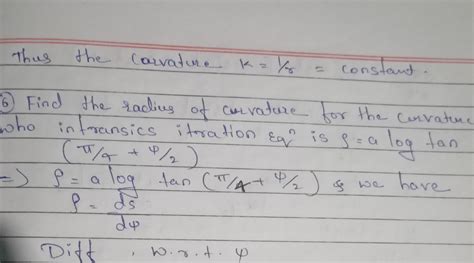 Thus the curvature K = 1/r = constant.
6 Find the radius of curvature for the curvature
who intransics itration Eqⁿ is ρ = a log tan
(π/4 + ψ/2)
=> ρ = a log tan (π/4 + ψ/2) & we have
ρ = ds/dψ
Diff . w.r.t. ψ